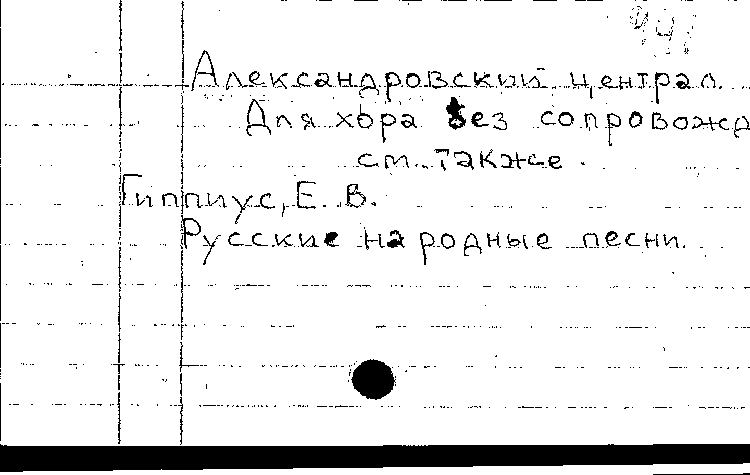 Александровский централ.
Для хора без сопровожд
см. также.
Гиппиус, Е. В.
Русские народные песни.